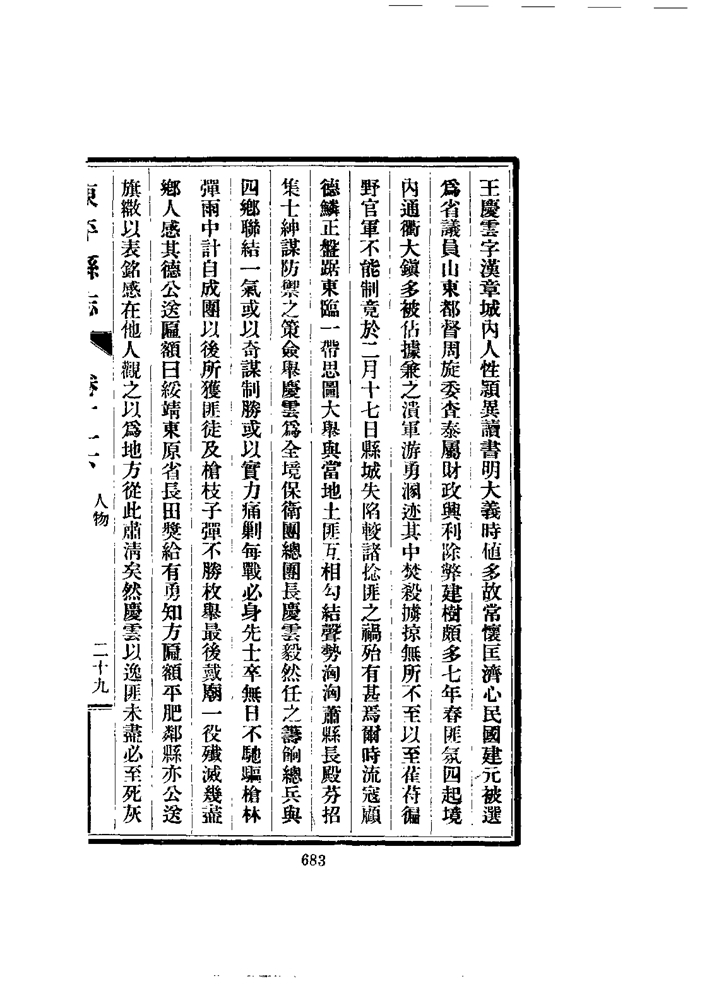 王慶雲字漢章城內人性穎異讀書明大義時値多故常懷匡濟心民國建元被選
爲省議員山東都督周旋委査泰屬財政興利除弊建樹頗多七年春匪氛四起境
內通衢大鎭多被佔據兼之潰軍游勇溷迹其中焚殺擄掠無所不至以至萑苻徧
野官軍不能制竟於二月十七日縣城失陷較諸捻匪之禍殆有甚焉爾時流寇顧
德鱗正盤踞東臨一帶思圖大舉與當地土匪互相勾結聲勢洶洶蕭縣長殿芬招
集士紳謀防禦之策僉舉慶雲爲全境保衛團總團長慶雲毅然任之籌餉總兵與
四鄉聯結一氣或以奇謀制勝或以實力痛剿每戰必身先士卒無日不馳驅槍林
彈雨中計自成團以後所獲匪徒及槍枝子彈不勝枚舉最後戴廟一役殲滅幾盡
鄉人感其德公送匾額曰綏靖東原省長田獎給有勇知方匾額平肥鄰縣亦公送
旗繖以表銘感在他人觀之以爲地方從此肅淸矣然慶雲以逸匪未盡必至死灰
東平縣志
卷十
人物
二十九
683